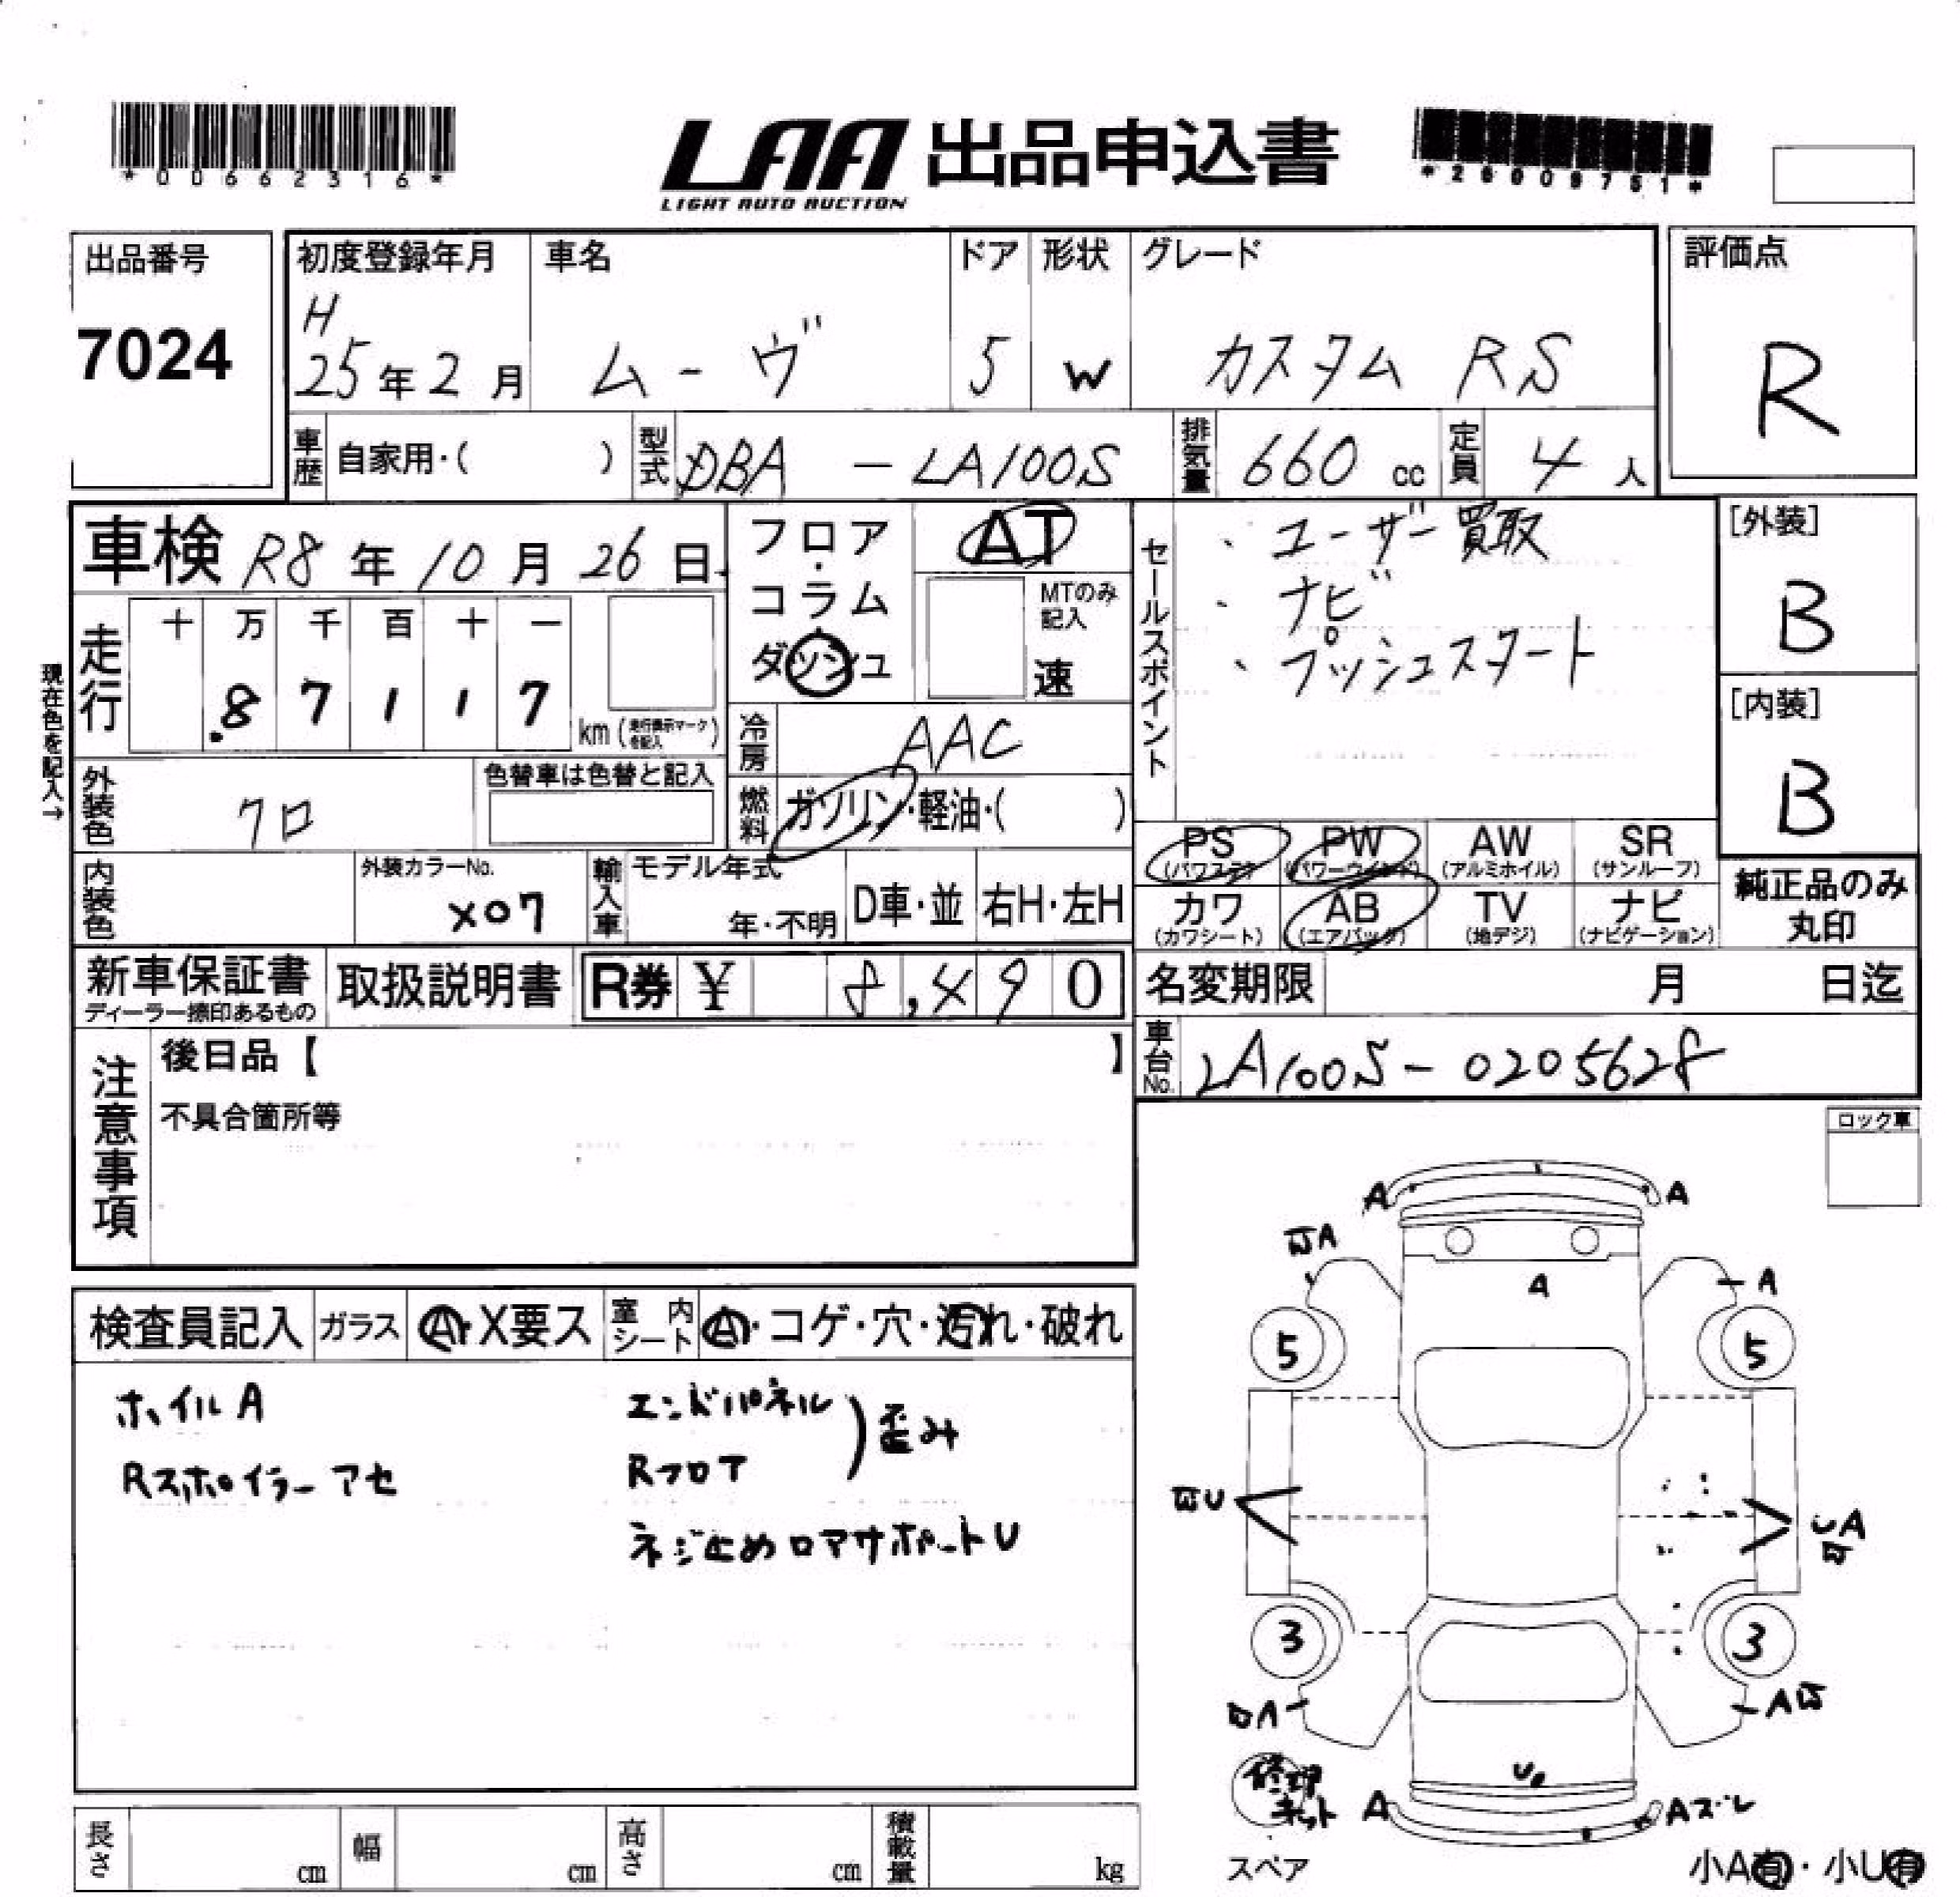 *00662316*
LAA 出品申込書
LIGHT AUTO AUCTION
*26009751*
出品番号
7024
初度登録年月
H
25年2月
車名
ムーヴ
ドア
5
形状
W
グレード
カスタム RS
評価点
R
車歴 自家用・( )
型式 DBA - LA100S
排気量 660 cc
定員 4 人
車検 R8年10月26日
フロア・コラム・ダッシュ
AT
MTのみ記入
速
セールスポイント
・ユーザー買取
・ナビ
・プッシュスタート
[外装]
B
[内装]
B
現在色を記入→
走行 十 万 千 百 十 一
8 7 1 1 7 km (走行表示マークを記入)
冷房 AAC
外装色 クロ
色替車は色替と記入
燃料 ガソリン・軽油・( )
PS (パワステ)
PW (パワーウィンド)
AW (アルミホイル)
SR (サンルーフ)
カワ (カワシート)
AB (エアバッグ)
TV (地デジ)
ナビ (ナビゲーション)
純正品のみ丸印
内装色
外装カラーNo.
X07
輸入車 モデル年式
年・不明
D車・並
右H・左H
新車保証書
ディーラー捺印あるもの
取扱説明書
R券 ¥ 8,490
名変期限 月 日迄
車台No. LA100S-0205628
注意事項
後日品【 】
不具合箇所等
ロック車
検査員記入 ガラス A・X要ス 室内シート A・コゲ・穴・汚れ・破れ
ホイルA
Rスポイラーアセ
エンドパネル
Rフロア
歪み
ネジ止めロアサポートU
A
A
A
A
A
5
5
U
UA
3
3
A
A
U
修理キット
A
Aズレ
スペア
小A有・小U有
長さ cm
幅 cm
高さ cm
積載量 kg